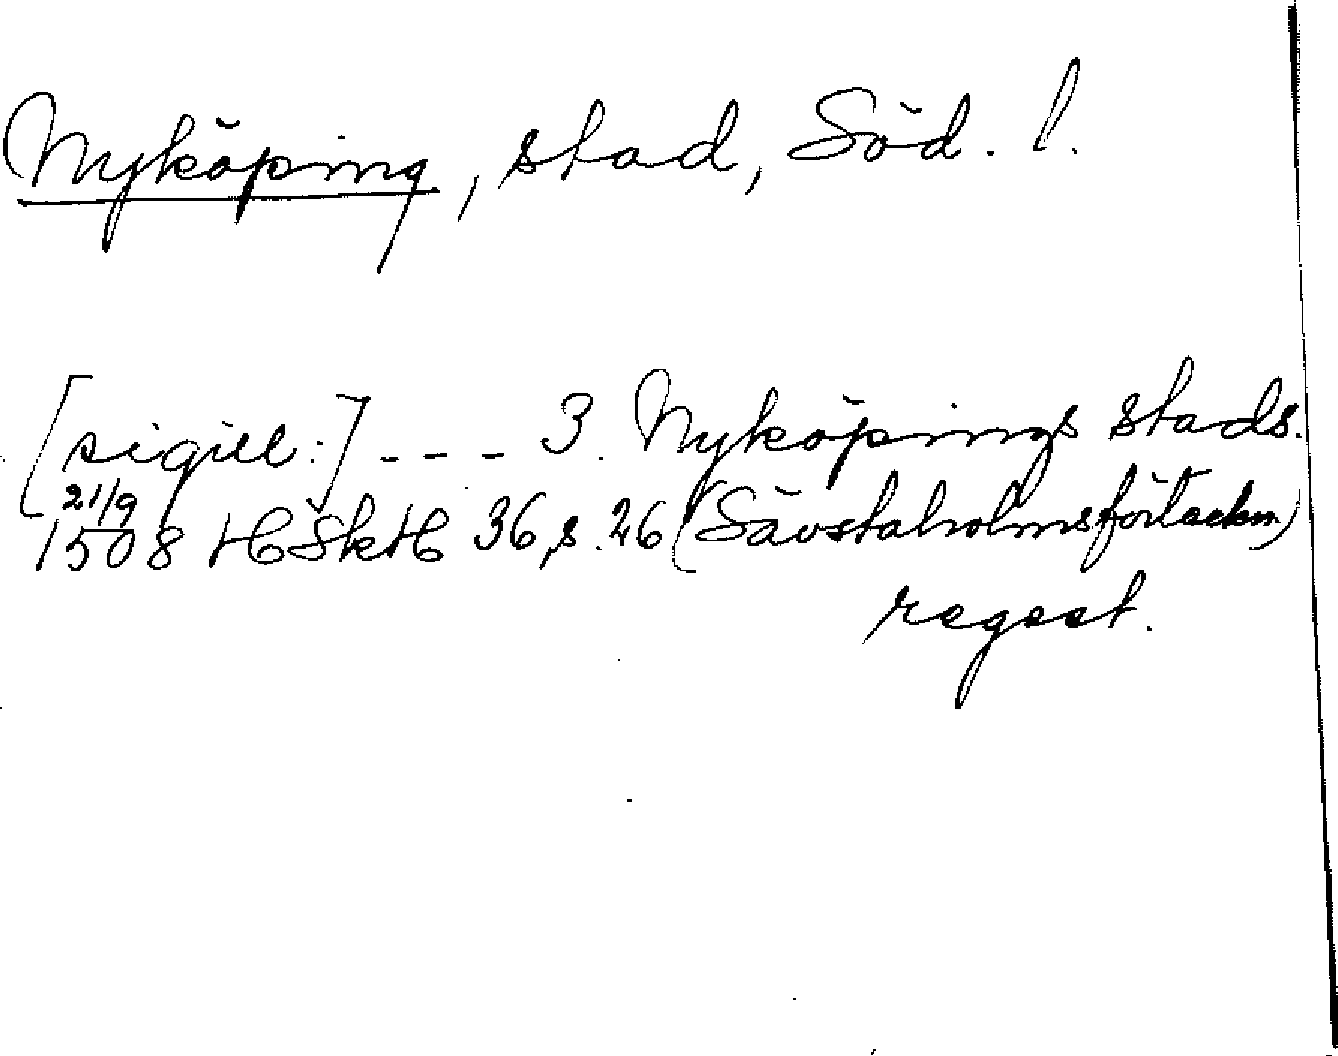 Nyköping, stad, Söd. l.
[sigill:] - - - 3. Nyköpings stads.
21/9
1508 HSkH 36, s. 26 (Sävstaholmsförteckn)
regest.